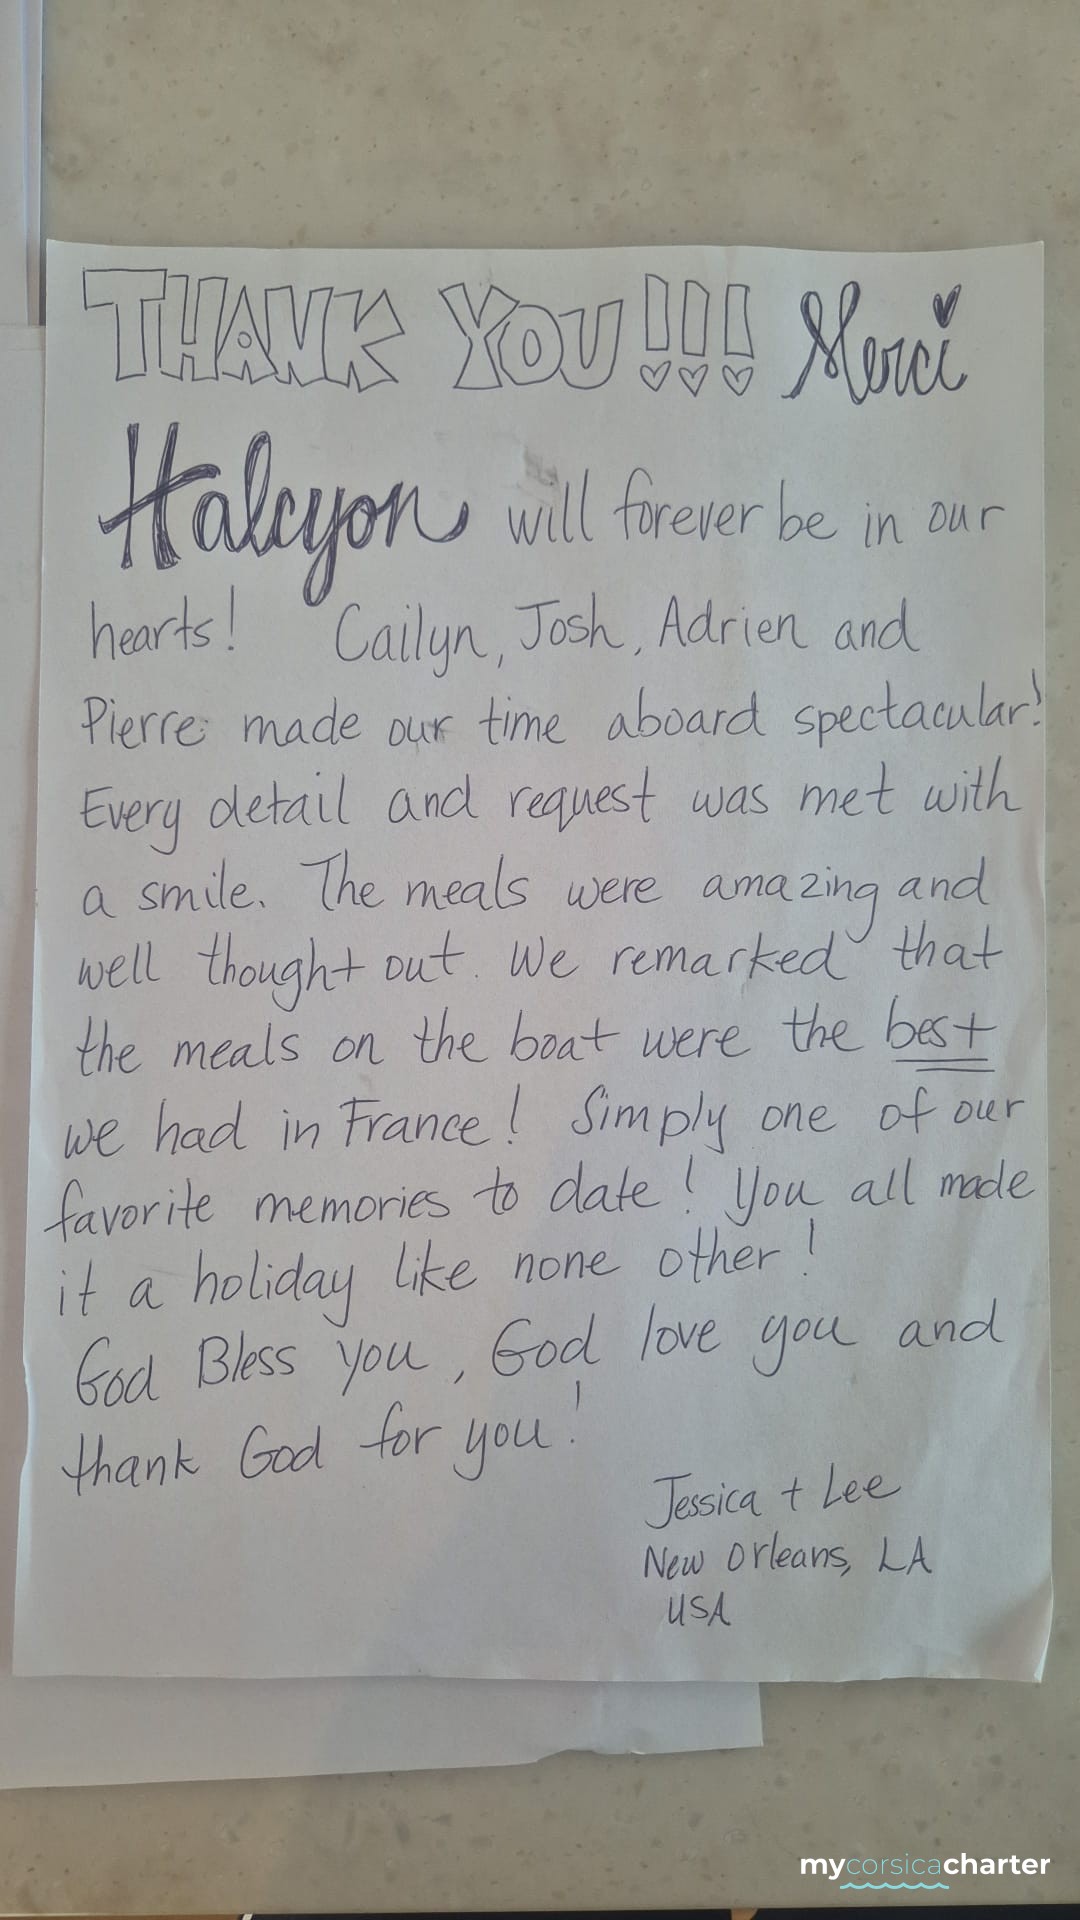 THANK YOU!!! Merci
Halcyon will forever be in our
hearts! Cailyn, Josh, Adrien and
Pierre made our time aboard spectacular!
Every detail and request was met with
a smile. The meals were amazing and
well thought out. We remarked that
the meals on the boat were the best
we had in France! Simply one of our
favorite memories to date! You all made
it a holiday like none other!
God Bless you, God love you and
thank God for you!
Jessica + Lee
New Orleans, LA
USA
mycorsicacharter